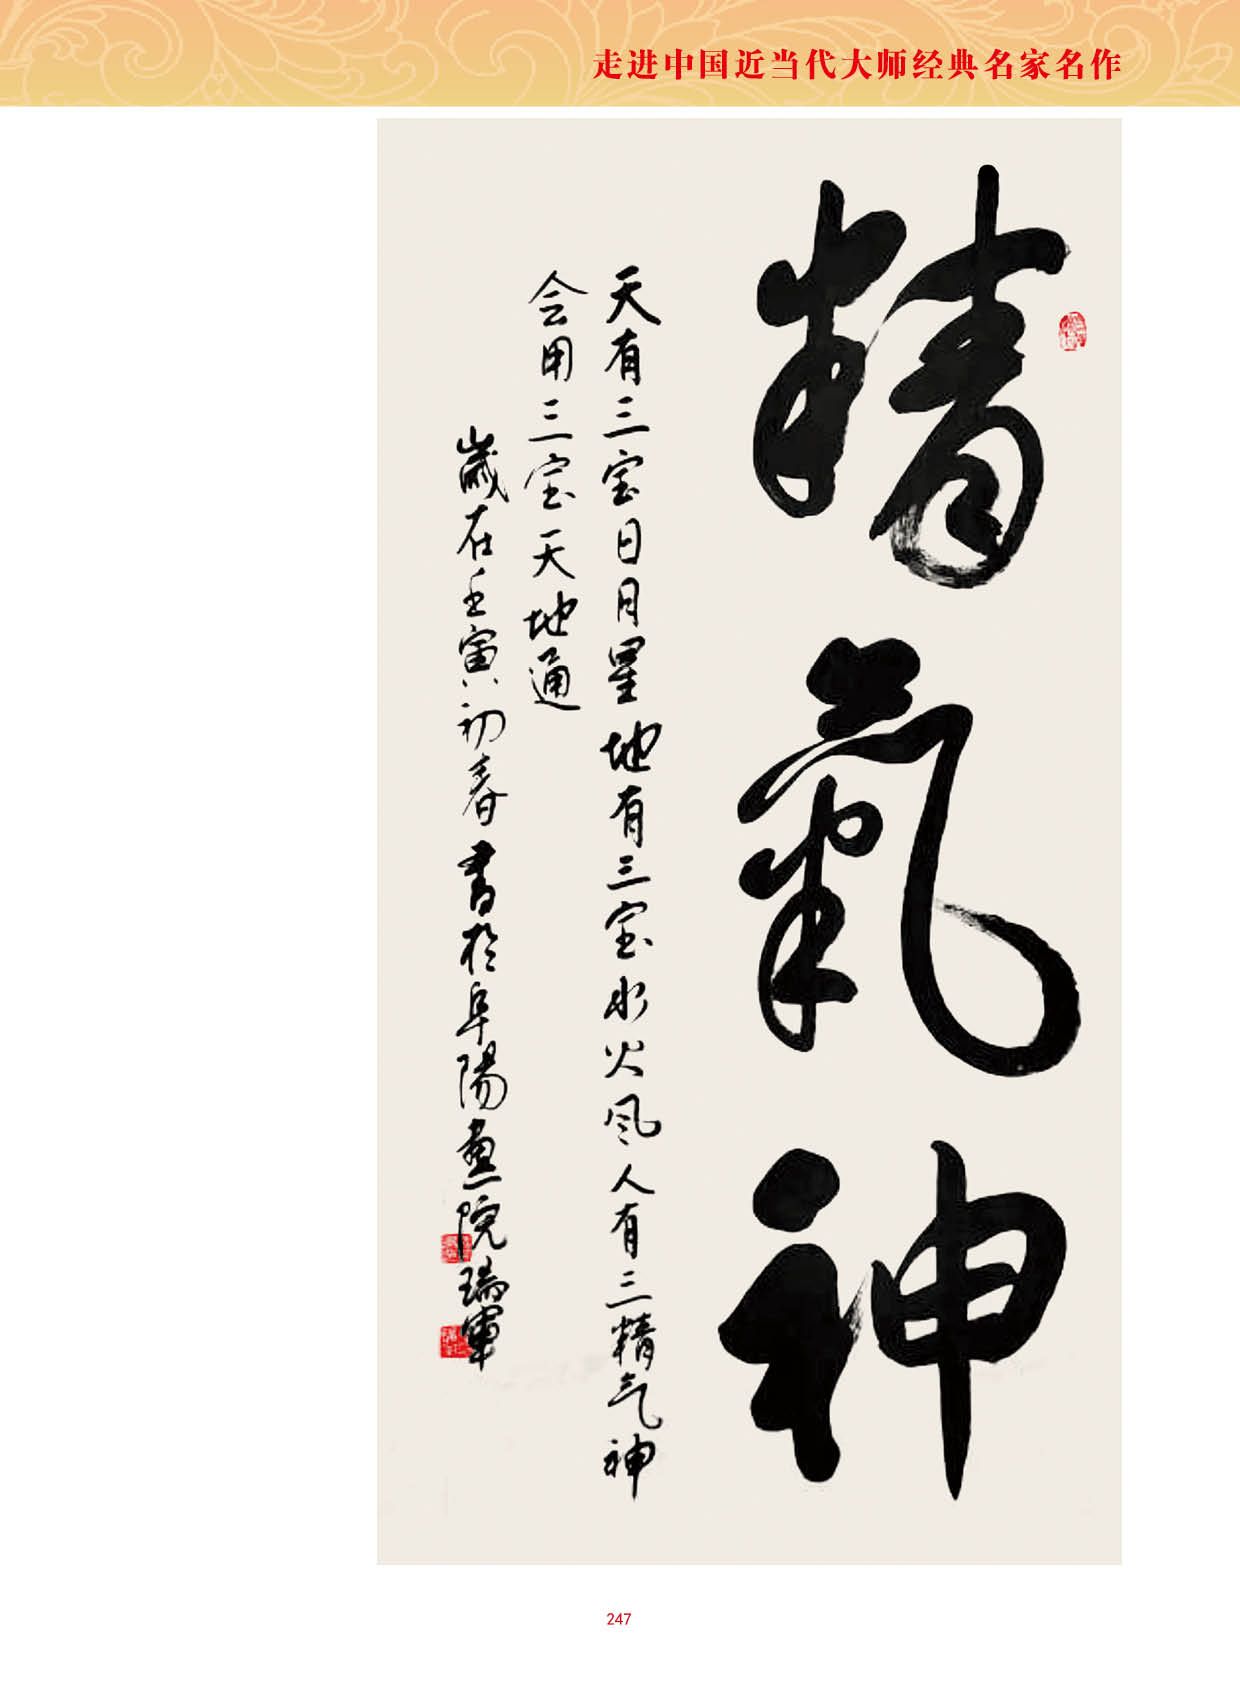 走进中国近当代大师经典名家名作
精氣神
天有三宝日月星地有三宝水火风人有三精气神
会用三宝天地通
歲在壬寅初春書於阜陽畫院瑞軍
247